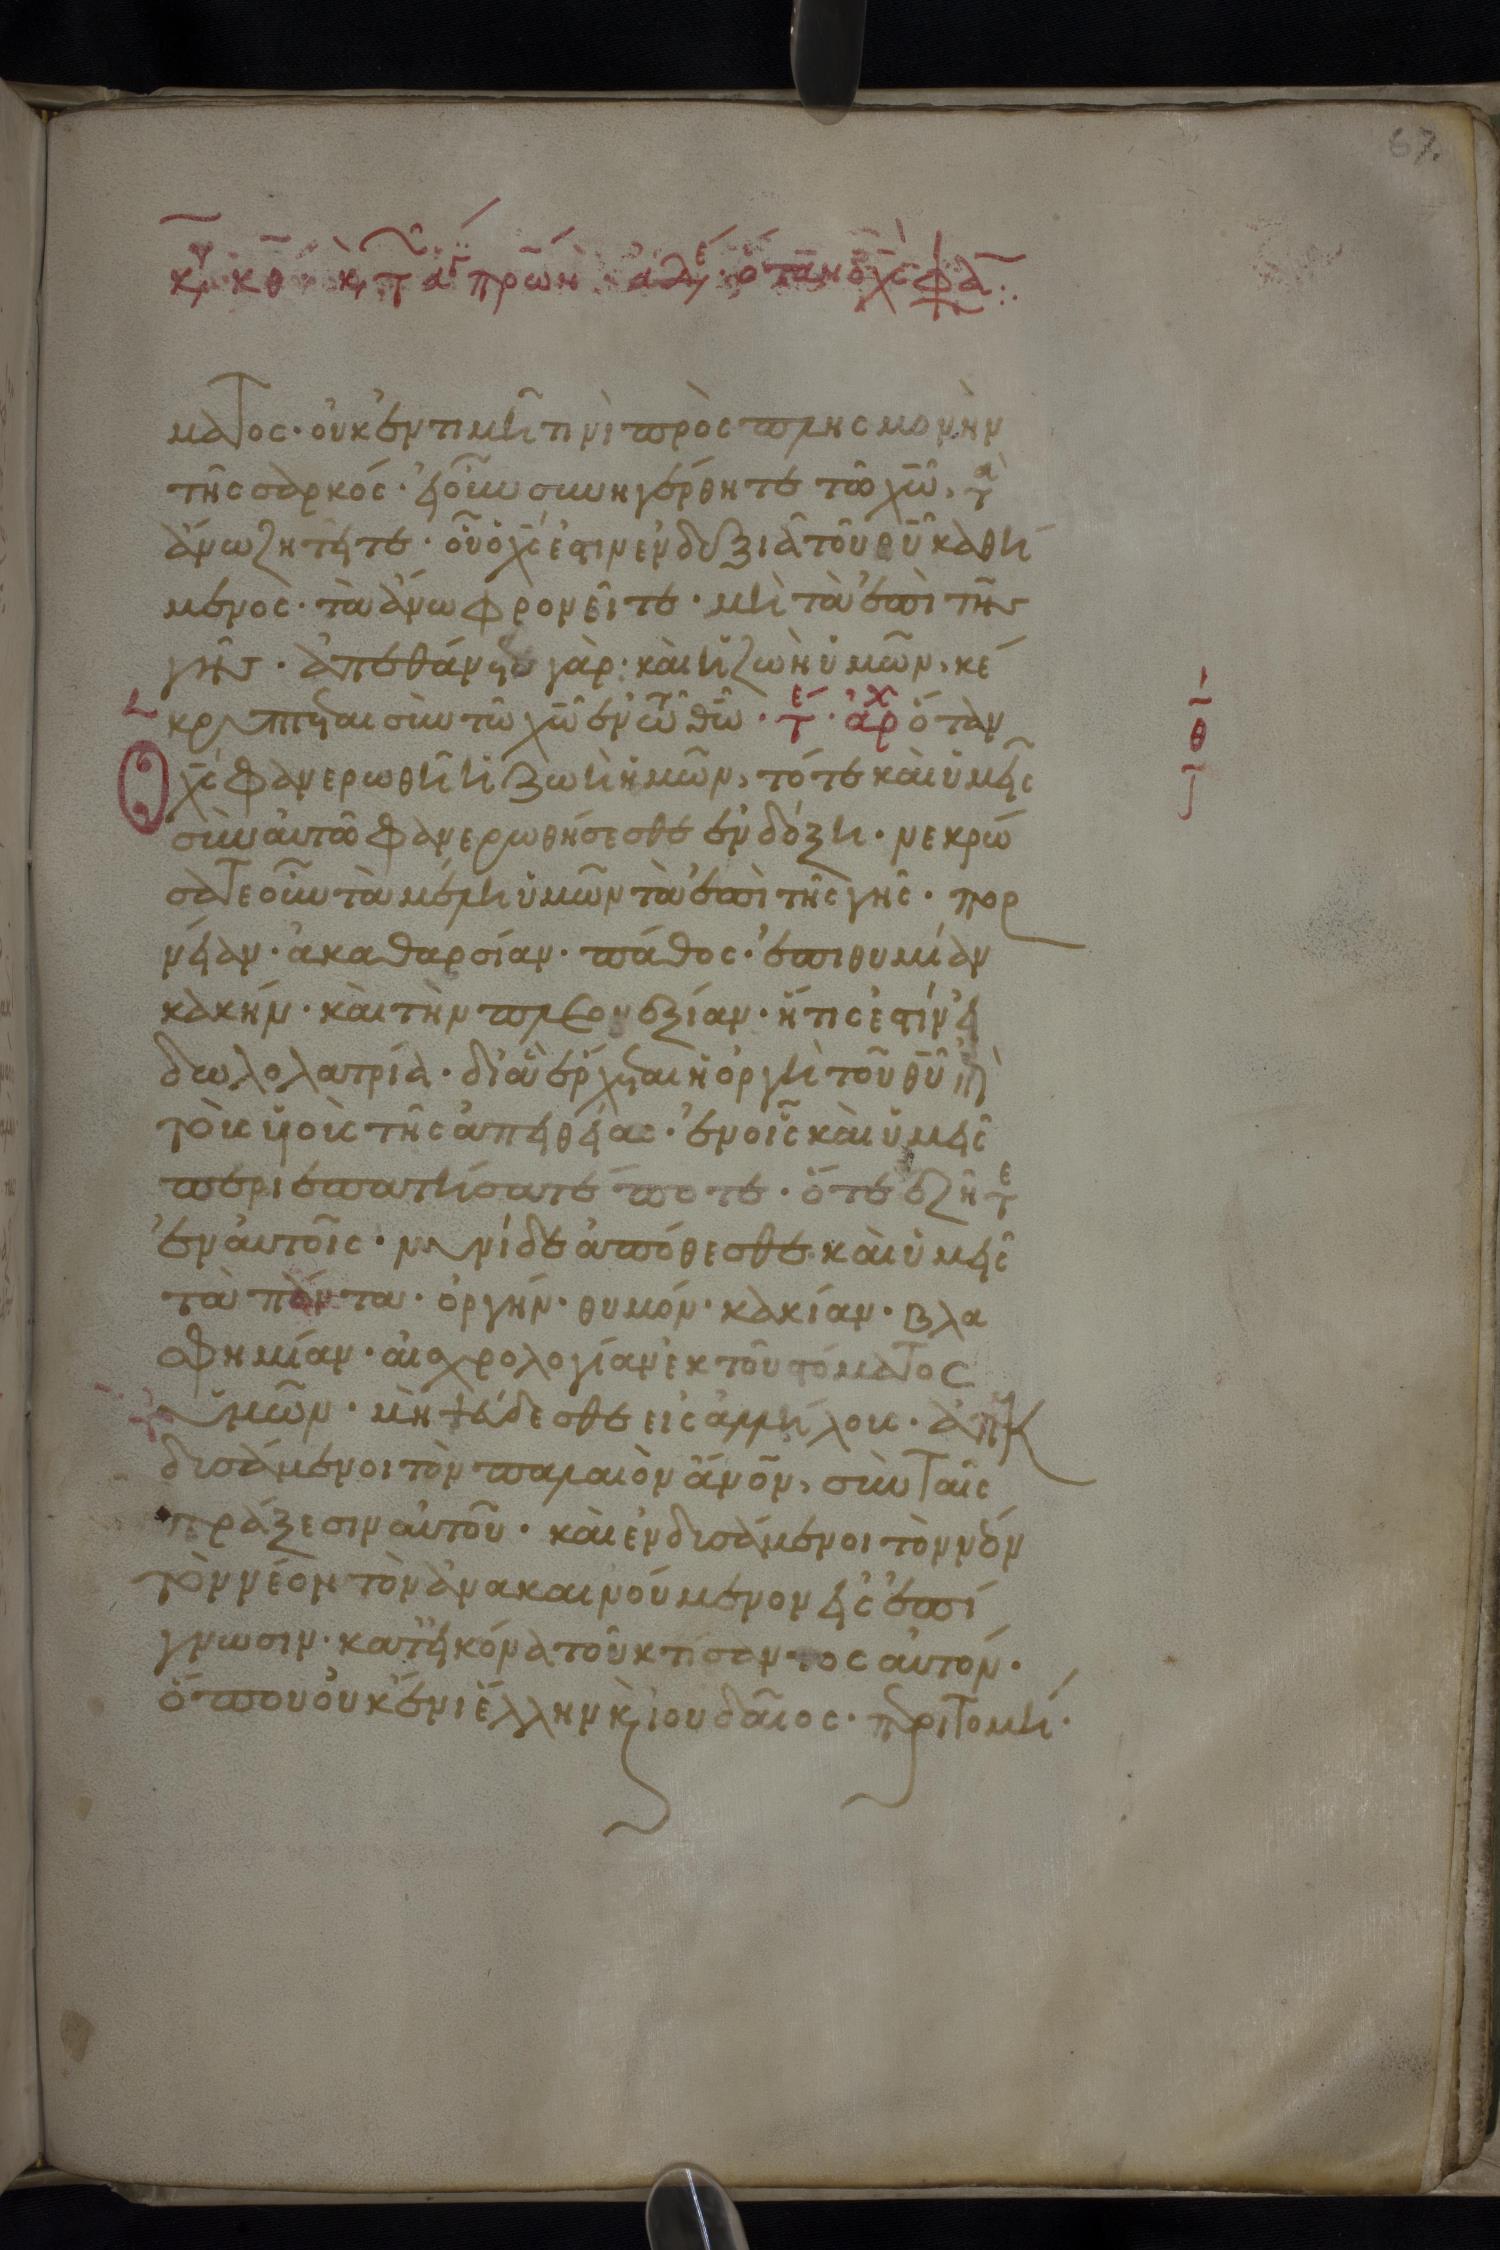 κυ κθ κ, τ ἁγ πρων ἀδε ὅταν ὁ χς φα
ματος· οὐκ ἐν τιμῆ τινὶ πρὸς πλησμονὴν
τῆς σαρκός· εἰ οὖν συνηγέρθητε τῶ χω, τὰ
ἄνω ζητεῖτε· οὗ ὁ χς ἐστιν ἐν δεξιᾶ τοῦ θυ καθή
μενος· τὰ ἄνω φρονεῖτε· μὴ τὰ ἐπὶ τῆς
γῆς· ἀπεθάνετε γὰρ· καὶ ἡ ζωὴ ὑμῶν, κέ
κρυπται σὺν τῶ χω ἐν τῶ θω· τέ· ἀρχ ὅταν
ὁ χς φανερωθῆ ἡ ζωὴ ἡμῶν, τότε καὶ ὑμεῖς
σὺν αὐτῶ φανερωθήσεσθε ἐν δόξη· νεκρώ
σατε οὖν τὰ μέλη ὑμῶν τὰ ἐπὶ τῆς γῆς· πορ
νείαν· ἀκαθαρσίαν· πάθος· ἐπιθυμίαν
κακήν· καὶ τὴν πλεονεξίαν· ἥτις ἐστὶν εἰ
δωλολατρία· δι' ἃ ἔρχεται ἡ ὀργὴ τοῦ θυ ἐπὶ
τοὺς υἱοὺς τῆς ἀπειθείας· ἐν οἷς καὶ ὑμεῖς
περιεπατήσατέ ποτε· ὅτε ἐζῆτε
ἐν αὐτοῖς· νυνὶ δὲ ἀπόθεσθε καὶ ὑμεῖς
τὰ πάντα· ὀργήν· θυμόν· κακίαν· βλα
σφημίαν· αἰσχρολογίαν ἐκ τοῦ στόματος
ὑμῶν· μὴ ψεύδεσθε εἰς ἀλλήλους· ἀπεκ
δυσάμενοι τὸν παλαιὸν ἄνον, σὺν ταῖς
πράξεσιν αὐτοῦ· καὶ ἐνδυσάμενοι τὸν νέον
τὸν νέον τὸν ἀνακαινούμενον εἰς ἐπί
γνωσιν· κατ' εἰκόνα τοῦ κτίσαντος αὐτόν·
ὅπου οὐκ ἔνι ἕλλην κ, ἰουδαῖος· περιτομή·